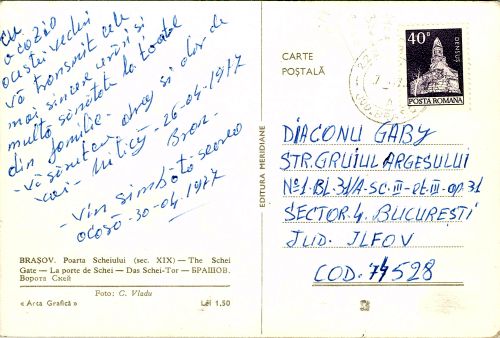 Cu
o cozio
acestei vederi
vă transmit cele
mai sincere urări și
multă sănătate la toată
din familie-
- vă sărutăm drag și dor de
voi - Mitică - 26-04-1977
Bran -
- vin sîmbătă seara
acasă - 30-04-1977
BRAȘOV. Poarta Scheiului (sec. XIX) — The Schei
Gate — La porte de Schei — Das Schei-Tor — БРАШОВ.
Ворота Скей
Foto: C. Vladu
« Arta Grafică »
Lei 1,50
EDITURA MERIDIANE
CARTE
POȘTALĂ
40B
DENSUȘ
POSTA ROMANA
DIACONU GABY
STR. GRUIUL ARGESULUI
Nº1-BL.31/A-SC.III-et.III-op.31
SECTOR-4. BUCUREȘTI
JUD. ILFOV
COD. 74528